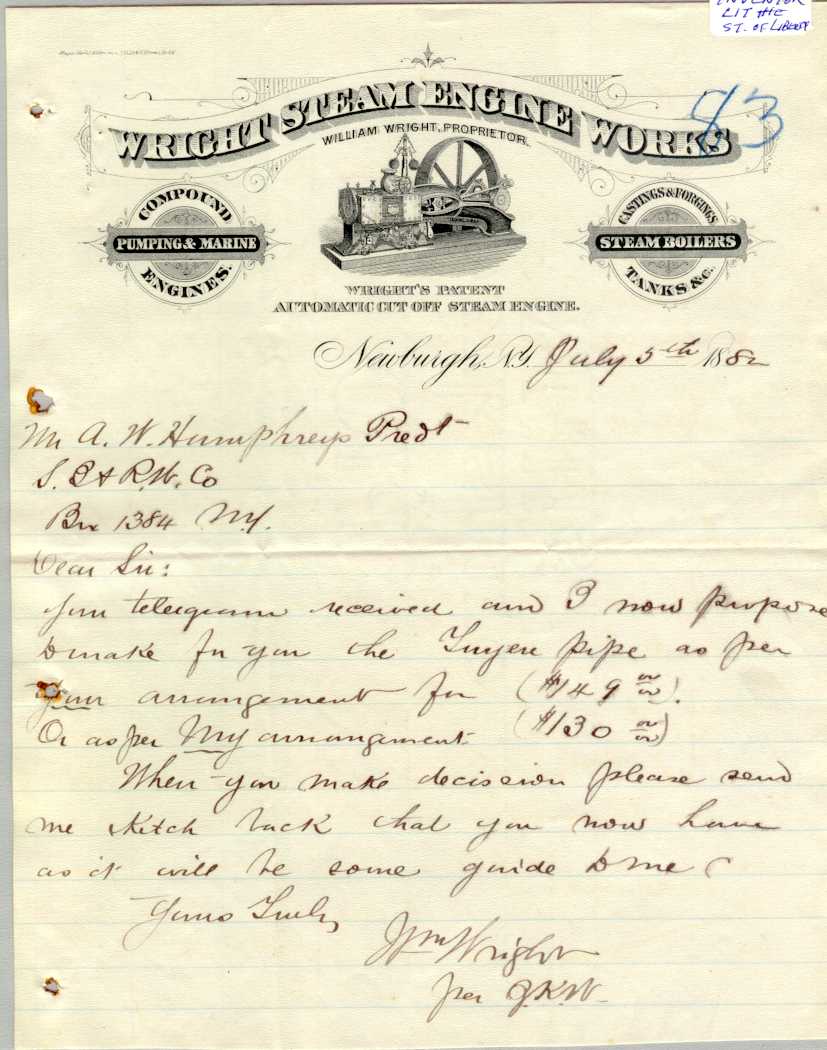 INVENTOR
LIT THE
ST. OF LIBERTY
WRIGHT STEAM ENGINE WORKS
83
WILLIAM WRIGHT, PROPRIETOR.
COMPOUND
PUMPING & MARINE
ENGINES.
CASTINGS & FORGINGS
STEAM BOILERS
TANKS &C.
WRIGHT'S PATENT
AUTOMATIC CUT OFF STEAM ENGINE.
Newburgh, N.Y. July 5th 1882
Mr A. W. Humphreys Predt
S. & R.W. Co
Box 1384 N.Y.
Dear Sir:
Your telegram received and I now propose
to make for you the Tuyere pipe as per
your arrangement for ($149 00/00).
Or as per My arrangement ($130 00/00)
When you make decision please send
me sketch back that you now have
as it will be some guide to me
Yours Truly
Wm Wright
per J.K.W.